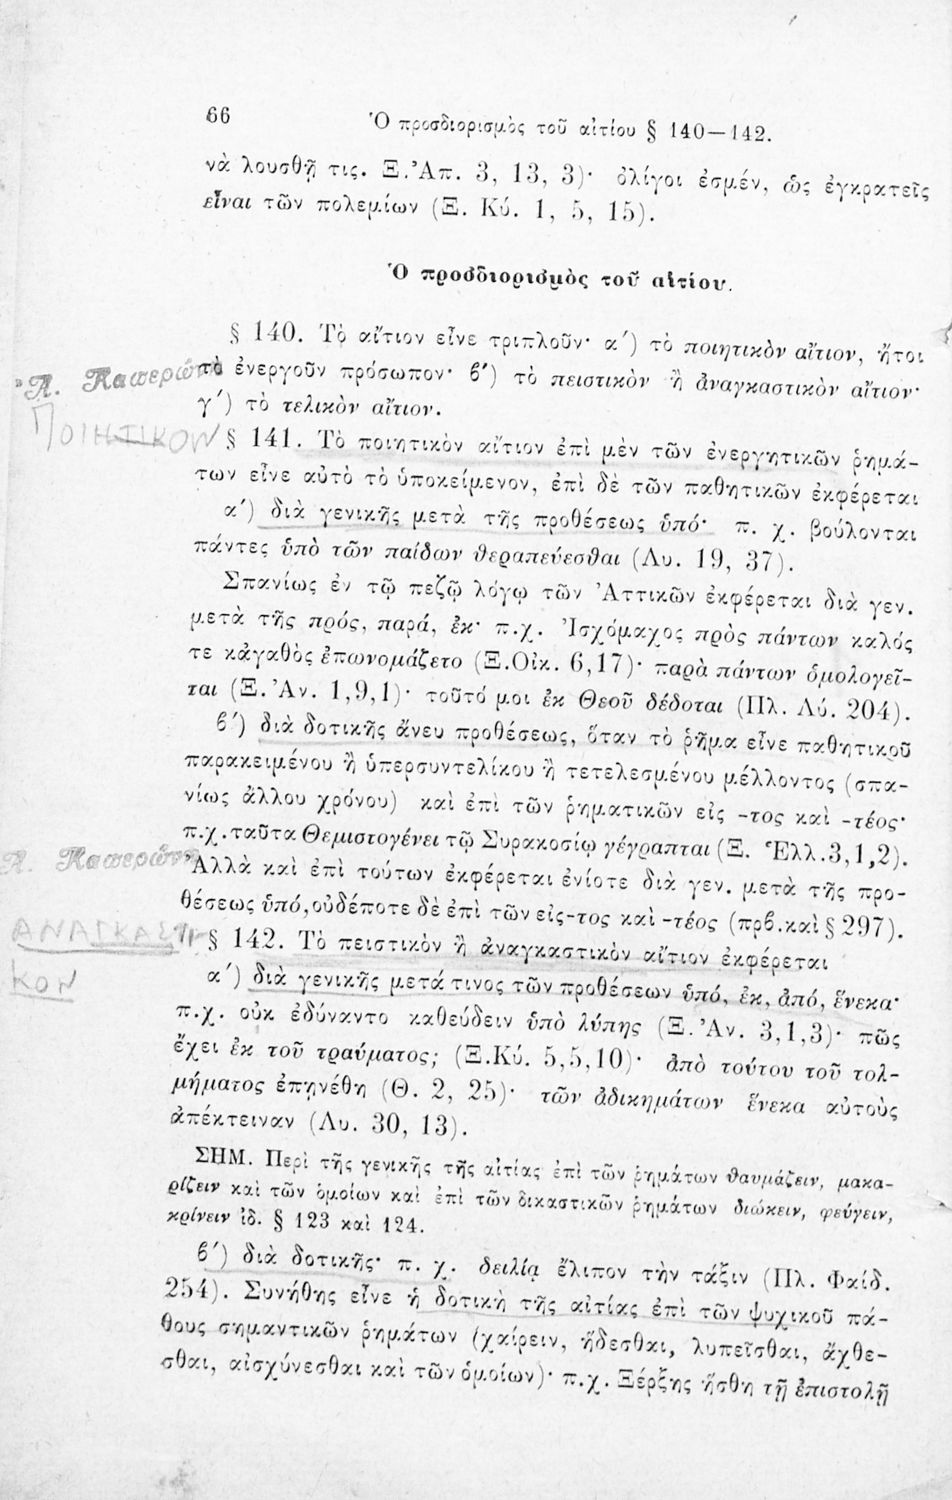 66
Ὁ προσδιορισμὸς τοῦ αἰτίου § 140—142.
νὰ λουσθῇ τις. Ξ.Ἀπ. 3, 13, 3)· ὀλίγοι ἐσμέν, ὡς ἐγκρατεῖς
εἶναι τῶν πολεμίων (Ξ. Κύ. 1, 5, 15).
Ὁ προσδιορισμὸς τοῦ αἰτίου.
§ 140. Τὸ αἴτιον εἶνε τριπλοῦν· α΄) τὸ ποιητικὸν αἴτιον, ἤτοι
τὸ ἐνεργοῦν πρόσωπον· β΄) τὸ πειστικὸν ἢ ἀναγκαστικὸν αἴτιον·
γ΄) τὸ τελικὸν αἴτιον.
ΠΟΙΗΤΙΚΟΝ
§ 141. Τὸ ποιητικὸν αἴτιον ἐπὶ μὲν τῶν ἐνεργητικῶν ῥημά-
των εἶνε αὐτὸ τὸ ὑποκείμενον, ἐπὶ δὲ τῶν παθητικῶν ἐκφέρεται
α΄) διὰ γενικῆς μετὰ τῆς προθέσεως ὑπό· π. χ. βούλονται
πάντες ὑπὸ τῶν παίδων θεραπεύεσθαι (Λυ. 19, 37).
Σπανίως ἐν τῷ πεζῷ λόγῳ τῶν Ἀττικῶν ἐκφέρεται διὰ γεν.
μετὰ τῆς πρός, παρά, ἐκ· π.χ. Ἰσχόμαχος πρὸς πάντων καλός
τε κἀγαθὸς ἐπωνομάζετο (Ξ.Οἰκ. 6,17)· παρὰ πάντων ὁμολογεῖ-
ται (Ξ.Ἀν. 1,9,1)· τοῦτό μοι ἐκ Θεοῦ δέδοται (Πλ. Λύ. 204).
β΄) διὰ δοτικῆς ἄνευ προθέσεως, ὅταν τὸ ῥῆμα εἶνε παθητικοῦ
παρακειμένου ἢ ὑπερσυντελίκου ἢ τετελεσμένου μέλλοντος (σπα-
νίως ἄλλου χρόνου) καὶ ἐπὶ τῶν ῥηματικῶν εἰς -τος καὶ -τέος·
π.χ. ταῦτα Θεμιστογένει τῷ Συρακοσίῳ γέγραπται (Ξ. Ἑλλ.3,1,2).
Ἀλλὰ καὶ ἐπὶ τούτων ἐκφέρεται ἐνίοτε διὰ γεν. μετὰ τῆς προ-
θέσεως ὑπό, οὐδέποτε δὲ ἐπὶ τῶν εἰς -τος καὶ -τέος (πρβ. καὶ § 297).
ΑΝΑΓΚΑΣΤΙ
ΚΟΝ
§ 142. Τὸ πειστικὸν ἢ ἀναγκαστικὸν αἴτιον ἐκφέρεται
α΄) διὰ γενικῆς μετά τινος τῶν προθέσεων ὑπό, ἐκ, ἀπό, ἕνεκα·
π.χ. οὐκ ἐδύναντο καθεύδειν ὑπὸ λύπης (Ξ.Ἀν. 3,1,3)· πῶς
ἔχει ἐκ τοῦ τραύματος; (Ξ.Κύ. 5,5,10)· ἀπὸ τούτου τοῦ τολ-
μήματος ἐπῃνέθη (Θ. 2, 25)· τῶν ἀδικημάτων ἕνεκα αὐτοὺς
ἀπέκτειναν (Λυ. 30, 13).
ΣΗΜ. Περὶ τῆς γενικῆς τῆς αἰτίας ἐπὶ τῶν ῥημάτων θαυμάζειν, μακα-
ρίζειν καὶ τῶν ὁμοίων καὶ ἐπὶ τῶν δικαστικῶν ῥημάτων διώκειν, φεύγειν,
κρίνειν ἰδ. § 123 καὶ 124.
β΄) διὰ δοτικῆς· π. χ. δειλίᾳ ἔλιπον τὴν τάξιν (Πλ. Φαίδ.
254). Συνήθης εἶνε ἡ δοτικὴ τῆς αἰτίας ἐπὶ τῶν ψυχικοῦ πά-
θους σημαντικῶν ῥημάτων (χαίρειν, ἥδεσθαι, λυπεῖσθαι, ἄχθε-
σθαι, αἰσχύνεσθαι καὶ τῶν ὁμοίων)· π.χ. Ξέρξης ἥσθη τῇ ἐπιστολῇ